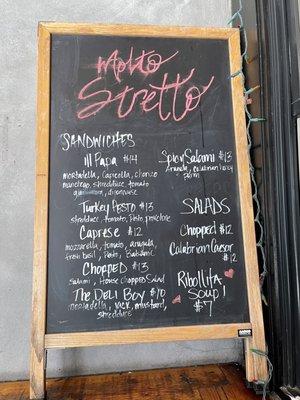 Molto
Stretto
SANDWICHES
Ill Papa $14
mortadella, Capicolla, chorizo
manchego, shredduce, tomato
giardiniera, dijonnaise
Turkey Pesto $13
shredduce, tomato, Pesto, provolone
Caprese $12
mozzarella, tomato, arugula,
fresh basil, Pesto, Balsamic
Chopped $13
Salami, House Chopped Salad
The Deli Boy $10
mortadella, mustard,
shredduce
Spicy Salami $13
Arugula, calabrian honey
SALADS
Chopped $12
Calabrian Caesar
$12
Ribollita
Soup!
$7